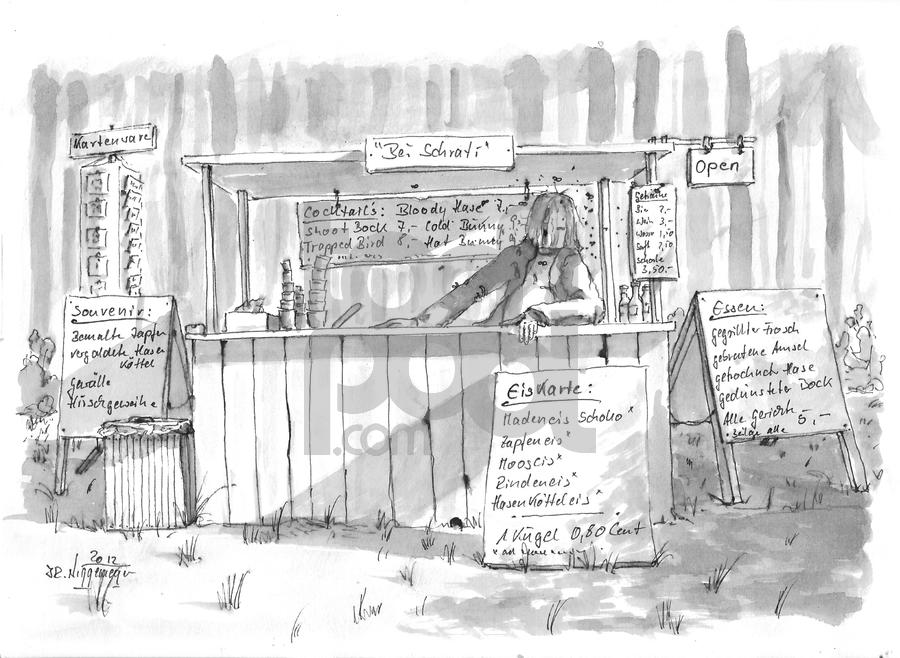 Kartenware
"Bei Schrati"
Open
Cocktail's: Bloody Hase 7,-
Shoot Bock 7,- Cold Bunny
Trapped Bird 8,- Hot Bunny
Getränke
Bier 2,-
Wein 3,-
Wasser 1,50
Saft 2,50
Schorle
3,50.-
Souvenir:
Bemalte Zapfen
vergoldete Hasen
Köttel
Gewölle
Hirschgeweihe
Essen:
gegrillter Frosch
gebratene Amsel
gekochter Hase
gedünsteter Bock
Alle Gerichte 5,-
Beilage alle
Eiskarte:
Madeneis Schoko*
Zapfeneis*
Mooseis*
Rindeneis*
Hasenkötteleis*
1 Kugel 0,80 Cent
2012
toon
pool
.com